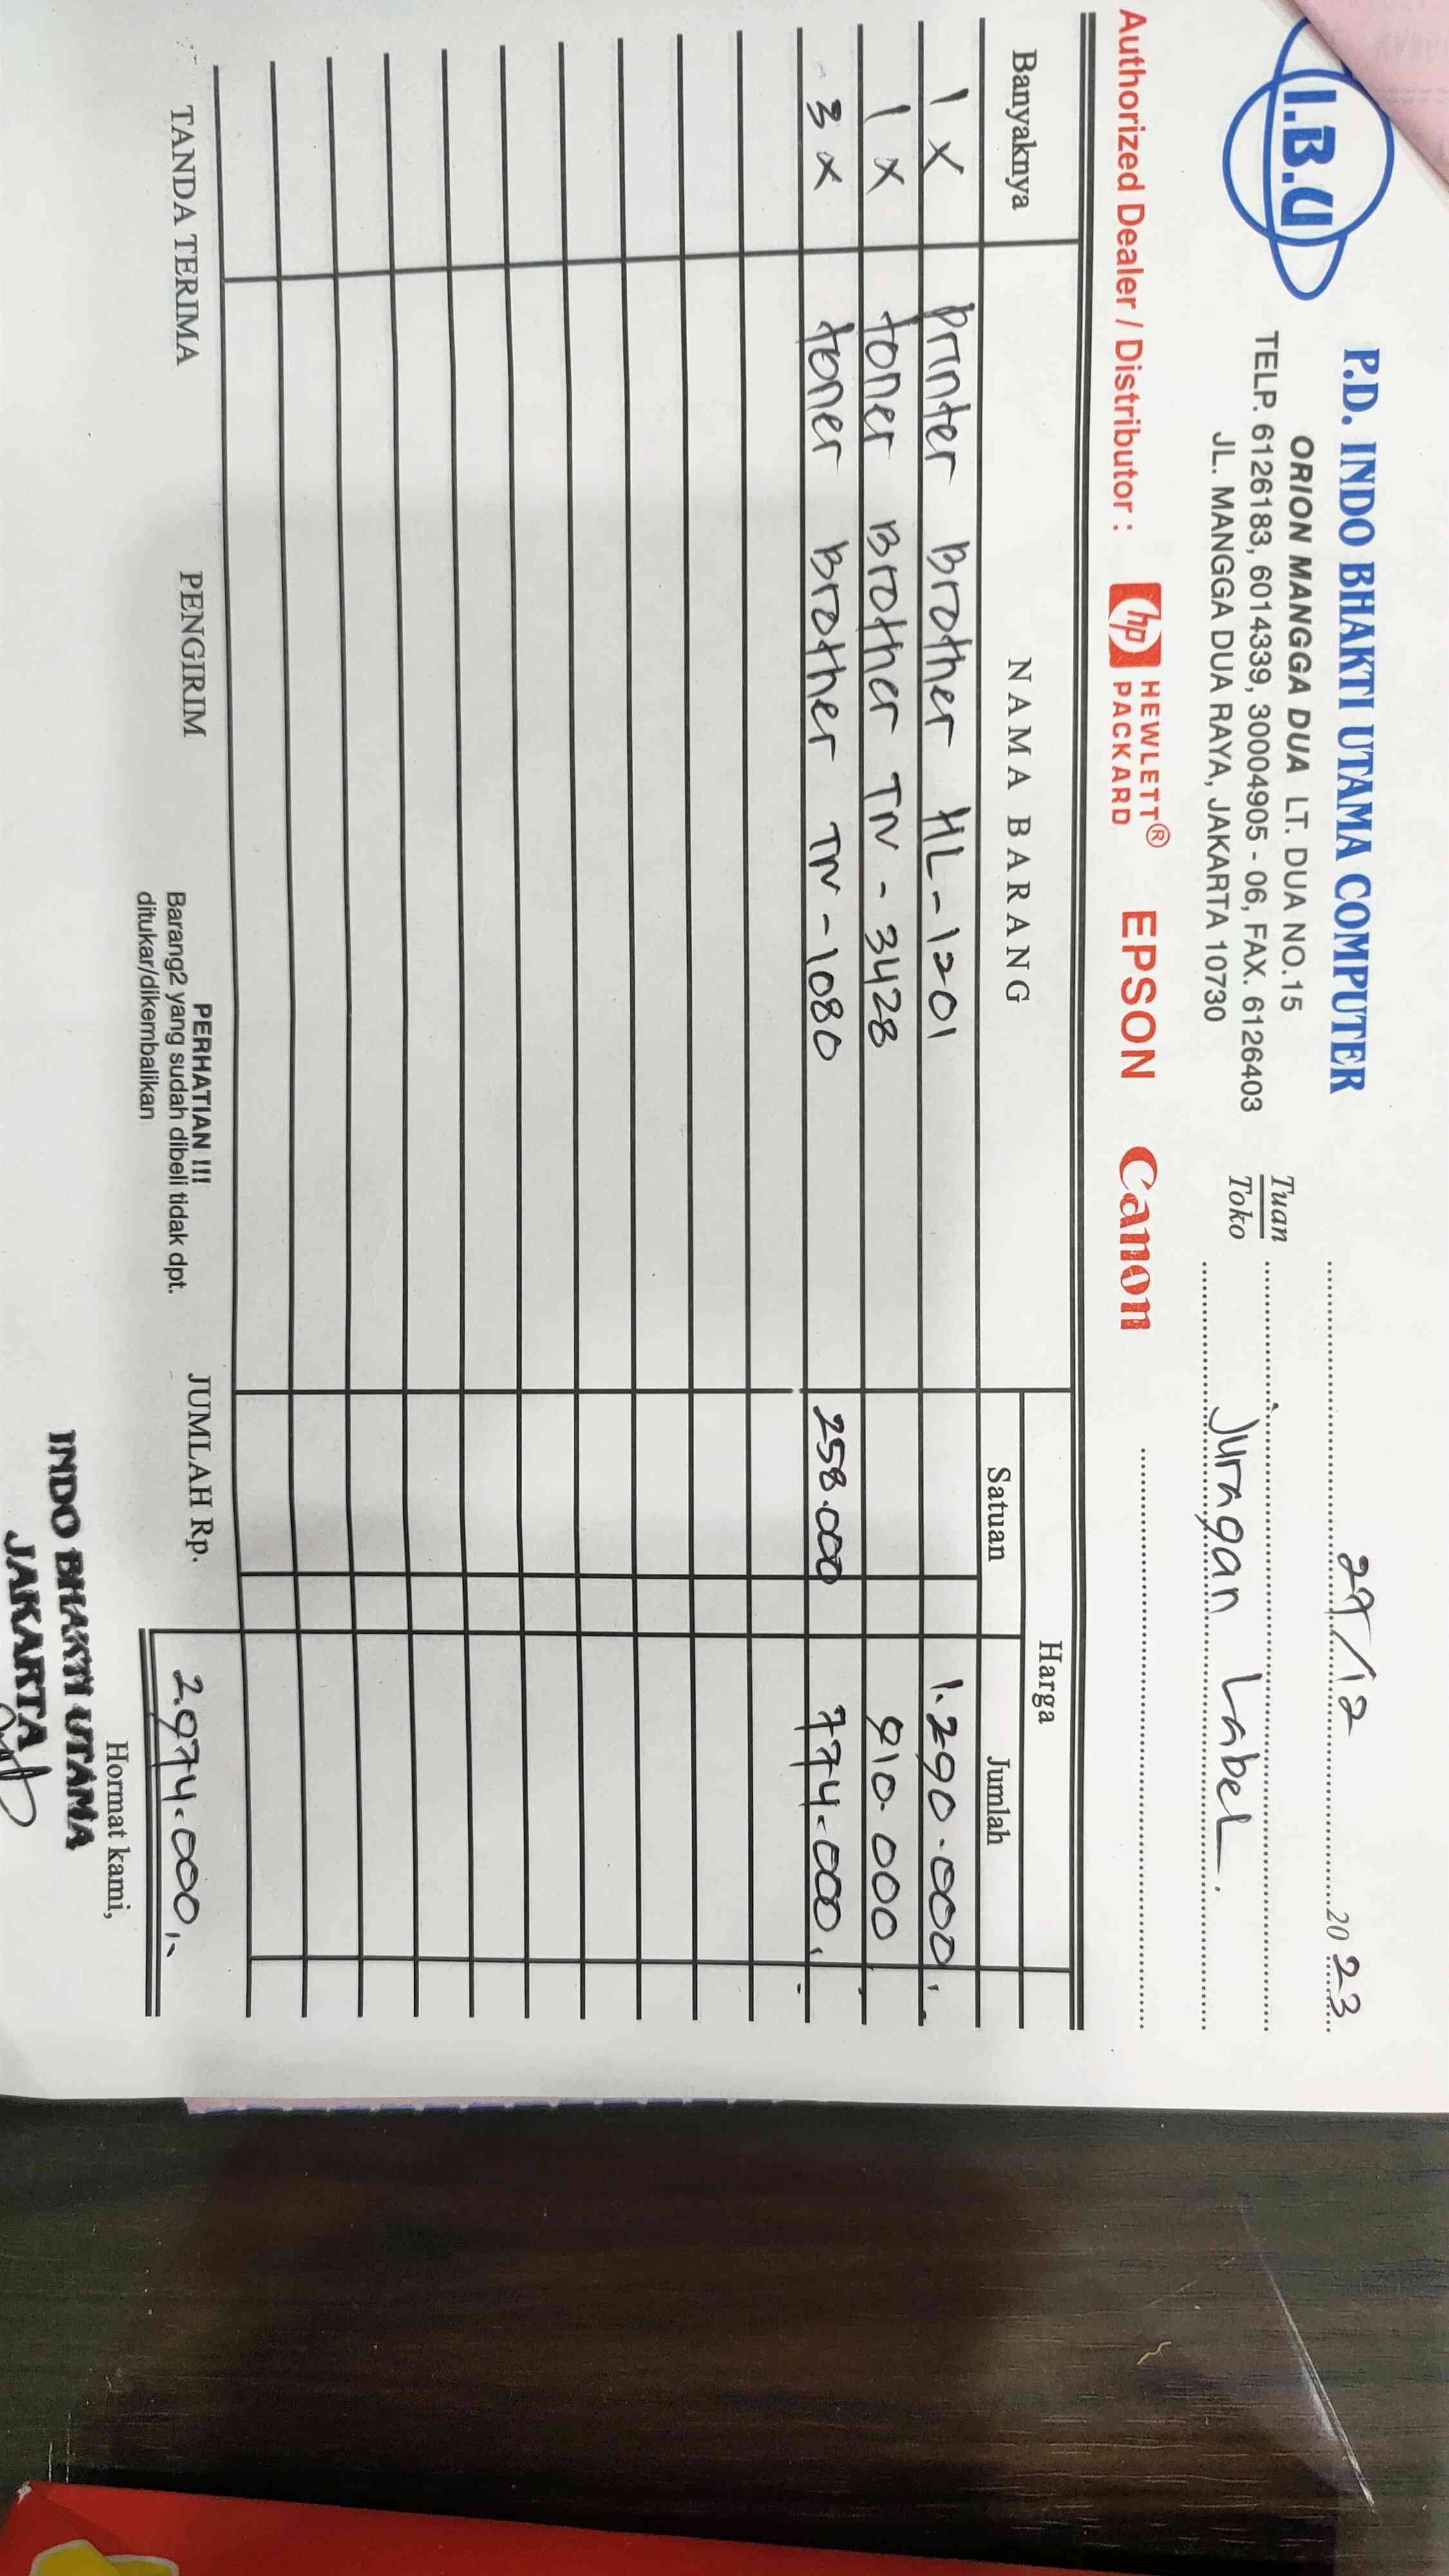 I.B.U
P.D. INDO BHAKTI UTAMA COMPUTER
ORION MANGGA DUA LT. DUA NO.15
TELP. 6126183, 6014339, 30004905 - 06, FAX. 6126403
JL. MANGGA DUA RAYA, JAKARTA 10730
29/12 2023
Tuan
Toko
Juragan Label.
Authorized Dealer / Distributor : hp HEWLETT® PACKARD EPSON Canon
Banyaknya NAMA BARANG Harga
Satuan Jumlah
1 x printer Brother HL-1201 1.290.000,-
1 x toner Brother TN - 3428 910.000,-
3 x toner Brother TN-1080 258.000 774.000,-
TANDA TERIMA PENGIRIM PERHATIAN !!! JUMLAH Rp. 2.974.000,-
Barang2 yang sudah dibeli tidak dpt.
ditukar/dikembalikan
Hormat kami,
INDO BHAKTI UTAMA
JAKARTA